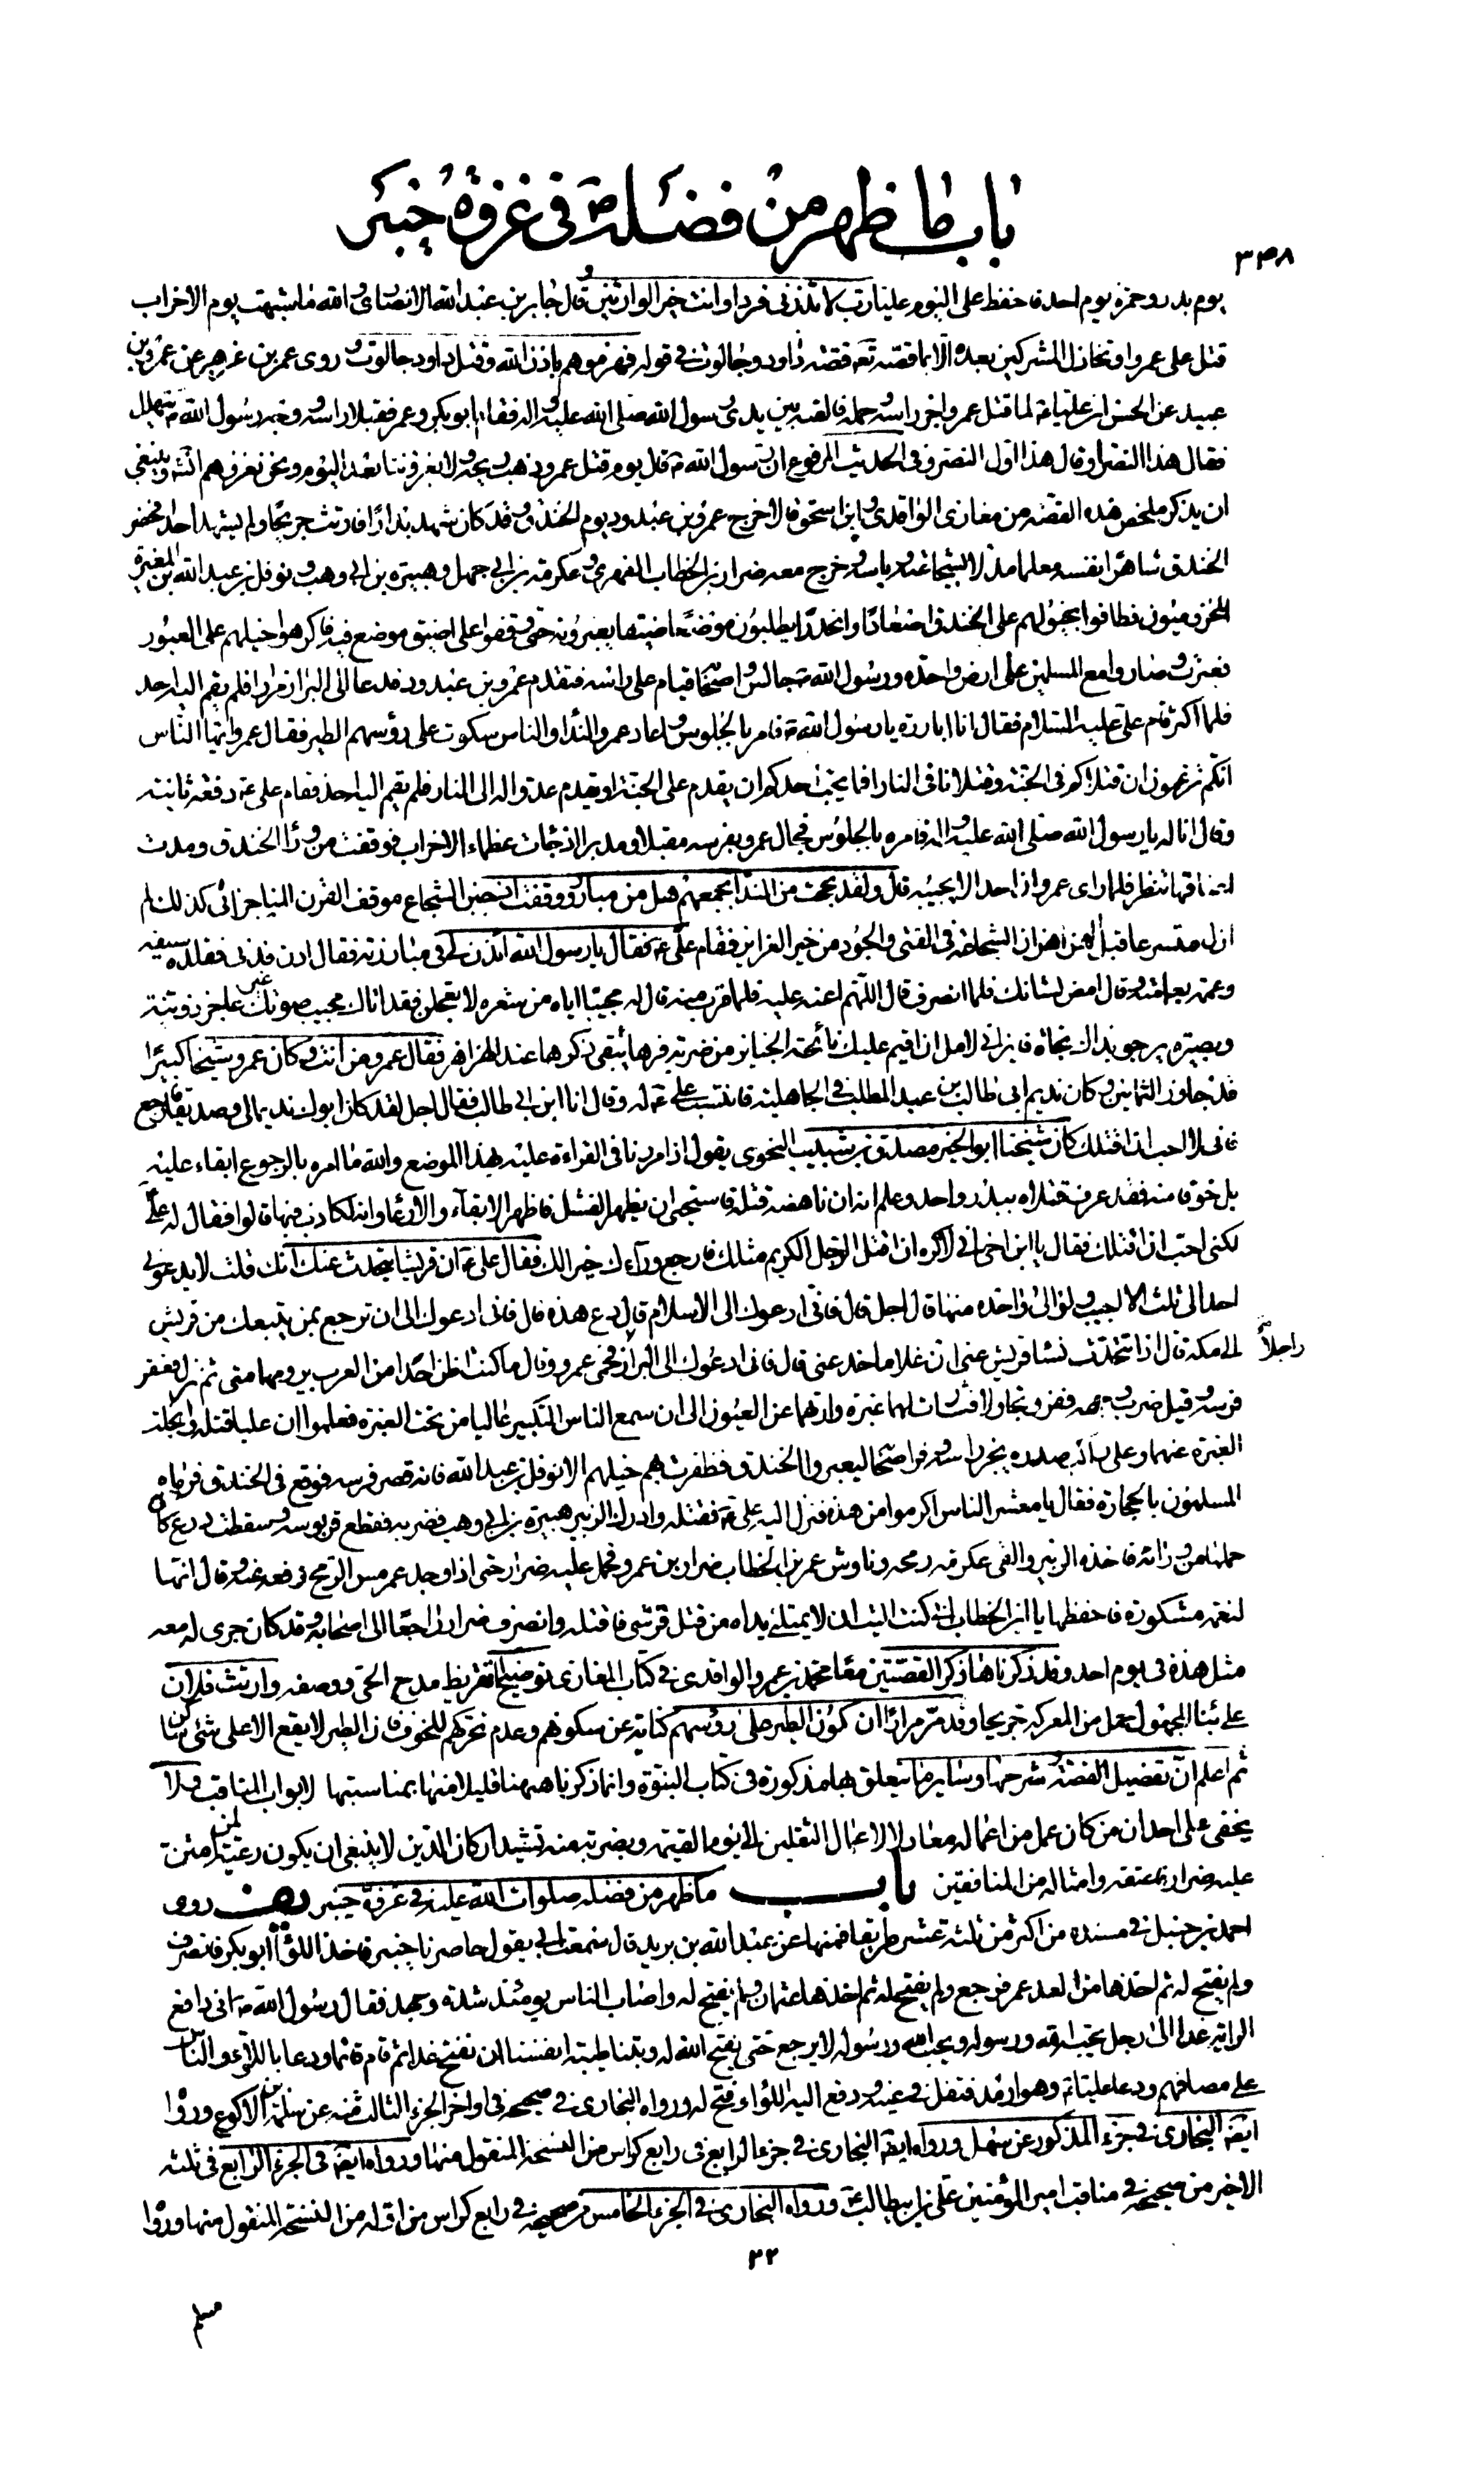 باب ما ظهر من فضله ص فی غزوة خیبر
۳۳۸
یوم بدر وحمزة یوم احد فاحفظ علی الیوم علیا رب لا تذرنی فردا وانت خیر الوارثین وقال جابر بن عبد الله الانصاری والله ما شبهت یوم الاحزاب
قتل علی عمروا وتخاذل المشرکین بعده الا بما قصه تع قصة داود وجالوت فی قوله فهزموهم باذن الله وقتل داود جالوت وروی عمرو بن عن عمرو بن
عبید عن الحسن ان علیا ع لما قتل عمروا جز راسه وحمله فالقیه بین یدی رسول الله صلی الله علیه واله فقام ابو بکر وعمر فقبلا راسه ووجه رسول الله ص یتهلل
فقال هذا النصر او قال هذا اول النصر وفی الحدیث المرفوع ان رسول الله ص قال یوم قتل عمرو ذهب ریحهم ولا یغزوننا بعد الیوم ونحن نغزوهم انش وینبغی
ان یذکر ملخص هذه القصة من مغازی الواقدی وابن اسحق قالا خرج عمرو بن عبدود یوم الخندق وقد کان شهد بدرا فارتث جریحا ولم یشهد احدا فحضر
الخندق شاهرا نفسه معلما مدلا بشجاعته وباسه وخرج معه ضرار بن الخطاب الفهری وعکرمة بن ابی جهل وهبیرة بن ابی وهب ونوفل بن عبد الله بن المغیرة
المخزومیون فطافوا بخیولهم علی الخندق اصعادا وانحدارا یطلبون موضعا ضیقا یعبرونه حتی وقفوا علی اضیق موضع فیه فاکرهوا خیلهم علی العبور
فعبرت وصاروا مع المسلمین علی ارض واحدة ورسول الله ص جالس واصحابه قیام علی راسه فتقدم عمرو بن عبدود فدعا الی البراز مرارا فلم یقم الیه احد
فلما اکثر قام علی علیه السلام فقال انا ابارزه یا رسول الله ص فامره بالجلوس واعاد عمرو النداء والناس سکوت علی رؤسهم الطیر فقال عمرو ایها الناس
انکم تزعمون ان قتلاکم فی الجنة وقتلانا فی النار افما یحب احدکم ان یقدم علی الجنة او یقدم عدوا له الی النار فلم یقم الیه احد فقام علی ع دفعة ثانیة
وقال انا له یا رسول الله صلی الله علیه واله فامره بالجلوس فجال عمرو بفرسه مقبلا ومدبرا اذ جاءت عظماء الاحزاب فوقفت من وراء الخندق ومدت
اعناقها تنظر فلما رای عمرو ان احدا لا یجیبه قال ولقد بححت من النداء بجمعهم هل من مبارز ووقفت اذ جبن الشجاع موقف القرن المناجز انی کذلک لم
ازل متسرعا قبل الهزاهز ان الشجاعة فی الفتی والجود من خیر الغرایز فقام علی ع فقال یا رسول الله ائذن لی فی مبارزته فقال ادن فدنی فقلده سیفه
وعممه بعمامته وقال امض لشانک فلما انصرف قال اللهم اعنه علیه فلما قرب منه قال له مجیبا ایاه من شعره لا تعجلن فقد اتاک مجیب صوتک غیر عاجز ذو نیة
وبصیرة یرجو بذاک نجاة فایز انی لامل ان اقیم علیک نائحة الجنایز من ضربة فوهاء یبقی ذکرها عند الهزاهز فقال عمرو من انت وکان عمرو شیخا کبیرا
قد جاوز الثمانین وکان ندیم ابی طالب بن عبد المطلب فی الجاهلیة فانتسب علی ع له وقال انا ابن ابی طالب فقال اجل لقد کان ابوک ندیما لی وصدیقا فارجع
فانی لا احب ان اقتلک کان شیخنا ابو الخیر مصدق بن شبیب النحوی یقول اذا مررنا فی القراءة علیه بهذا الموضع والله ما امره بالرجوع ابقاء علیه
بل خوفا منه فقد عرف قتلاه ببدر واحد وعلم انه ان ناهضه قتله فاستحیی ان یظهر الفشل فاظهر الابقاء والارعاء وانه لکاذب فیها قالوا فقال له علی ع
لکنی احب ان اقتلک فقال یا ابن اخی انی لاکره ان اقتل الرجل الکریم مثلک فارجع وراءک خیر لک فقال علی ع ان قریشا یتحدث عنک انک قلت لا یدعونی
احد الی ثلث الا اجیب ولو الی واحدة منها قال اجل قال فانی ادعوک الی الاسلام قال دع هذه قال فانی ادعوک الی ان ترجع بمن یتبعک من قریش
الی مکة قال اذا تتحدث نساء قریش عنی ان غلاما خدعنی قال فانی ادعوک الی البراز فحمی عمرو وقال ما کنت اظن احدا من العرب یرومها منی ثم نزل فعقر
راجلا
فرسه وقیل ضرب وجهه ففر وتجاولا فثارت لهما غبرة وارتهما عن العیون الی ان سمع الناس التکبیر عالیا من تحت الغبرة فعلموا ان علیا قتله وانجلت
الغبرة عنهما وعلی راکب صدره یجز راسه وفر اصحابه لیعبروا الخندق فظفرت بهم خیلهم الا نوفل بن عبد الله فانه قصر فرسه فوقع فی الخندق فرماه
المسلمون بالحجارة فقال یا معشر الناس اکرموا من هذه فنزل الیه علی ع فقتله وادرک الزبیر هبیرة بن ابی وهب فضربه فقطع قربوسه وسقطت درع کان
حملها من ورائه فاخذه الزبیر والقی عکرمة رمحه وناوش عمر بن الخطاب ضرار بن عمرو فحمل علیه ضرار حتی اذا وجد عمر مس الرمح رفعه عنه وقال انها
لنعمة مشکورة فاحفظها یا ابن الخطاب انی کنت الیت ان لا یمتلئ یداه من قتل قرشی فاقتله وانصرف ضرار راجعا الی اصحابه وقد کان جری له معه
مثل هذه فی یوم احد وقد ذکرناها ذکر القصتین معا محمد بن عمرو الواقدی فی کتاب المغازی توضیح التقریظ مدح الحی ووصفه وارتث فلان
علی بناء المجهول حمل من المعرکة جریحا وقد مر مرارا ان کون الطیر علی رؤسهم کنایة عن سکونهم وعدم تحرکهم للخوف فان الطیر لا یقع الا علی شئ ساکن
ثم اعلم ان تفصیل القصة وشرحها وسایر ما یتعلق بها مذکورة فی کتاب النبوة وانما ذکرنا ههنا قلیلا منها بمناسبتها لابواب المناقب ولا
یخفی علی احد ان من کان عمل من اعماله معادلا لاعمال الثقلین الی یوم القیمة وبضربة منه تشید ارکان الدین لا ینبغی ان یکون رعیة لمن امتن
علیه ضرار بما عتقه وامثاله من المنافقین باب ما ظهر من فضله صلوات الله علیه فی غزوة خیبر یف روی
احمد بن حنبل فی مسنده من اکثر من ثلثة عشر طریقا فمنها عن عبد الله بن برید قال سمعت ابی یقول حاصرنا خیبر فاخذ اللواء ابو بکر فانصرف
ولم یفتح له ثم اخذها من الغد عمر فرجع ولم یفتح له ثم اخذها عثمان ولم یفتح له واصاب الناس یومئذ شدة وجهد فقال رسول الله ص انی دافع
الرایة غدا الی رجل یحب الله ورسوله ویحبه الله ورسوله لا یرجع حتی یفتح الله له وبتنا طیبة انفسنا ان نفتح غدا ثم قام قائما ودعا باللواء والناس
علی مصافهم ودعا علیا ع وهو ارمد فتفل فی عینیه ودفع الیه اللواء وفتح له ورواه البخاری فی صحیحه فی اواخر الجزء الثالث منه عن سلمة بن الاکوع وروا
ایضا البخاری فی جزء المذکور عن سهل ورواه ایضا البخاری فی جزء الرابع فی رابع کراس من النسخة المنقول منها ورواه ایضا فی الجزء الرابع فی ثلثه
الاخیر من صحیحه فی مناقب امیر المؤمنین علی بن ابیطالب ع ورواه البخاری فی الجزء الخامس من صحیحه فی رابع کراس من اوله من النسخة المنقول منها وروا
۳۲
مسلم